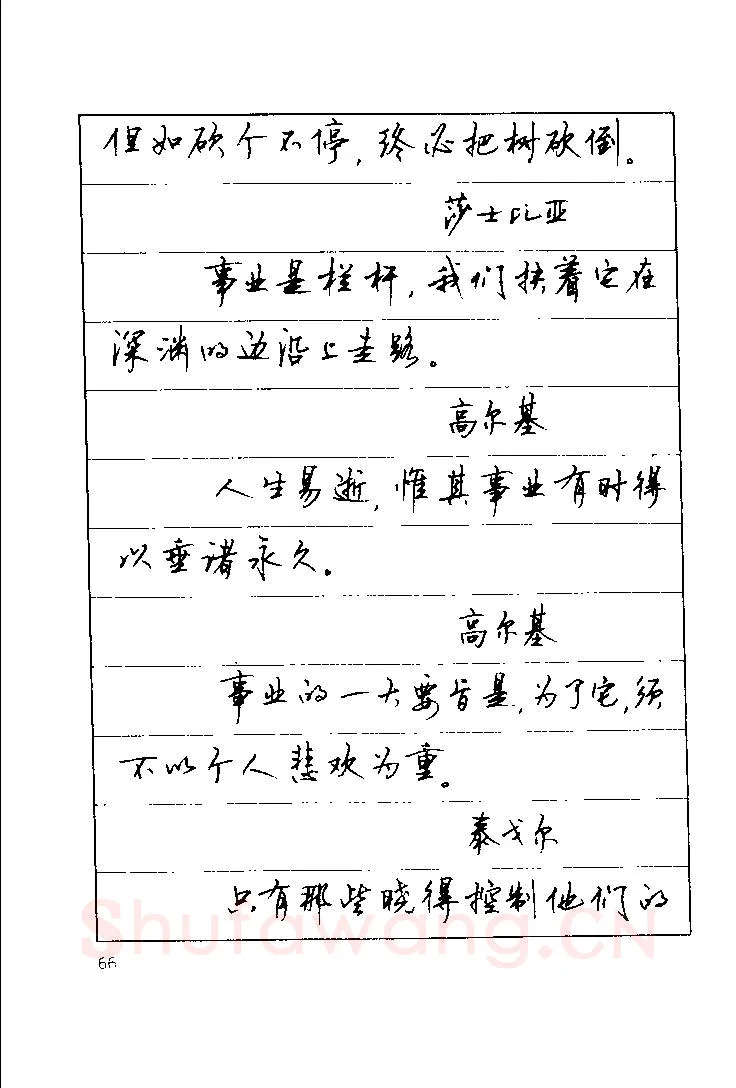 但如砍个不停，终必把树砍倒。
莎士比亚
事业是栏杆，我们扶着它在
深渊的边沿上走路。
高尔基
人生易逝，惟其事业有时得
以垂诸永久。
高尔基
事业的一大要旨是，为了它，须
不以个人悲欢为重。
泰戈尔
只有那些晓得控制他们的
Shufawang.CN
66